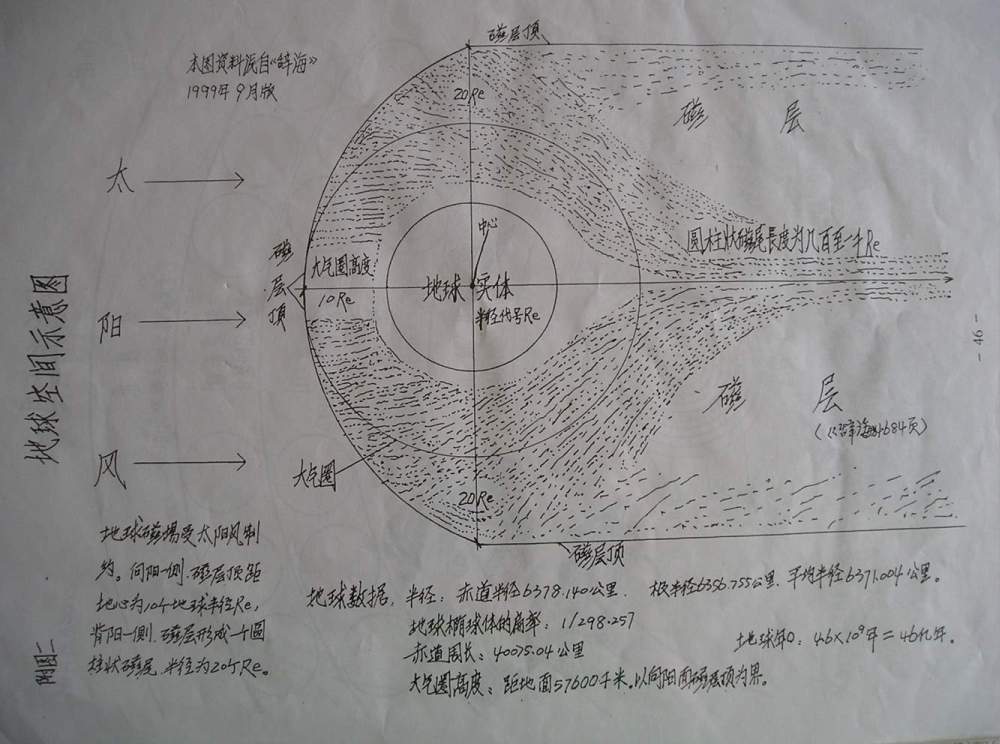 磁层顶
本图资料派自《辞海》
1999年9月版
20Re
磁 层
太
中心
圆柱状磁尾长度为几百至一千Re
磁层顶
大气圈高度
10Re
地球 实体
半径代号Re
阳
地球空间示意图
- 46 -
磁 层
风
大气圈
20Re
磁层顶
地球磁场受太阳风制
约。向阳一侧.磁层顶距
地心为10个地球半径Re,
背阳一侧.磁层形成一个圆
柱状磁尾.半径为20个Re。
附图二
地球数据, 半径: 赤道半径6378.140公里. 极半径6356.755公里. 平均半径6371.004公里。
地球椭球体的扁率: 1/298.257
地球年O: 4.6×10⁹年=46亿年。
赤道周长: 40075.04公里
大气圈高度: 距地面57600千米.以向阳面磁层顶为界。